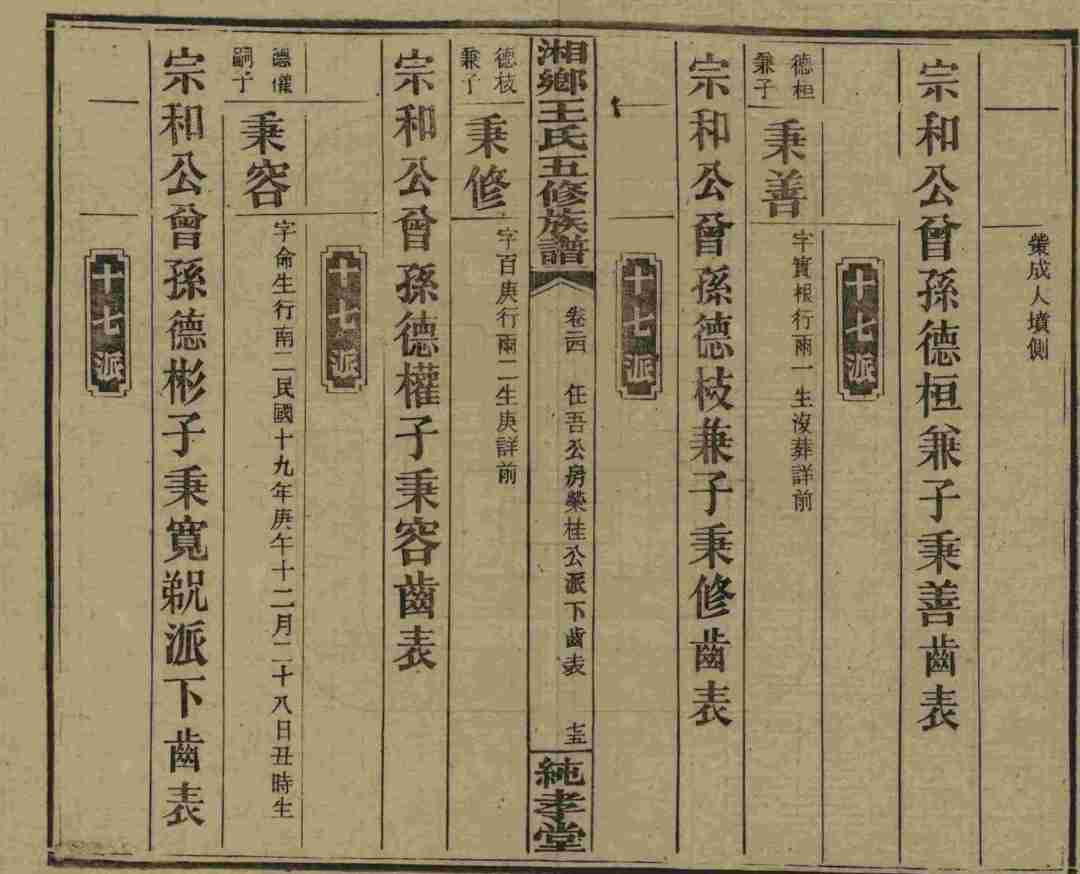 榮成人墳側
宗和公曾孫德桓兼子秉善齒表
十七派
德桓兼子
秉善
字寶根行兩一生沒葬詳前
宗和公曾孫德枝兼子秉修齒表
十七派
湘鄉王氏五修族譜
卷二四
任吾公房榮桂公派下齒表
七五
純孝堂
德枝兼子
秉修
字百庚行兩二生庚詳前
宗和公曾孫德權子秉容齒表
十七派
德權嗣子
秉容
字命生行南二民國十九年庚午十二月二十八日丑時生
宗和公曾孫德彬子秉寬派下齒表
十七派